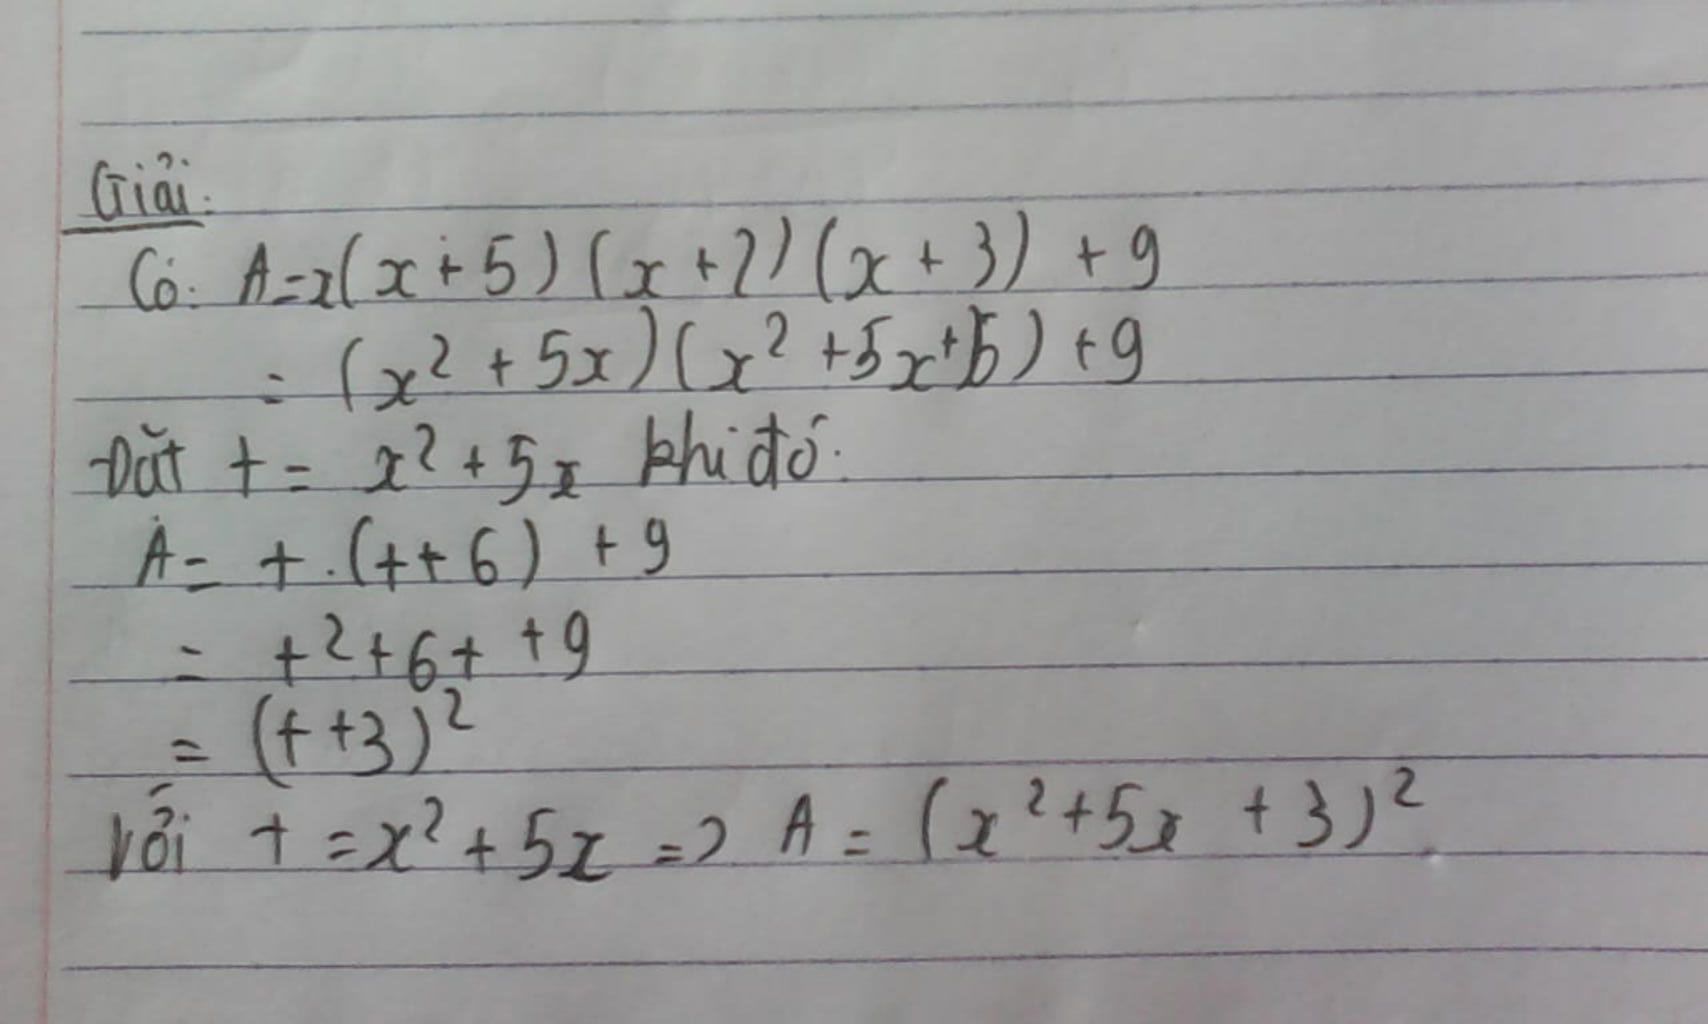 Giải:
Có: A=x(x+5)(x+2)(x+3) +9
= (x² + 5x)(x² +5x+6) +9
Đặt t = x² + 5x khi đó:
A = t.(t+6) +9
= t²+6t +9
= (t+3)²
Với t = x² + 5x => A = (x²+5x +3)²